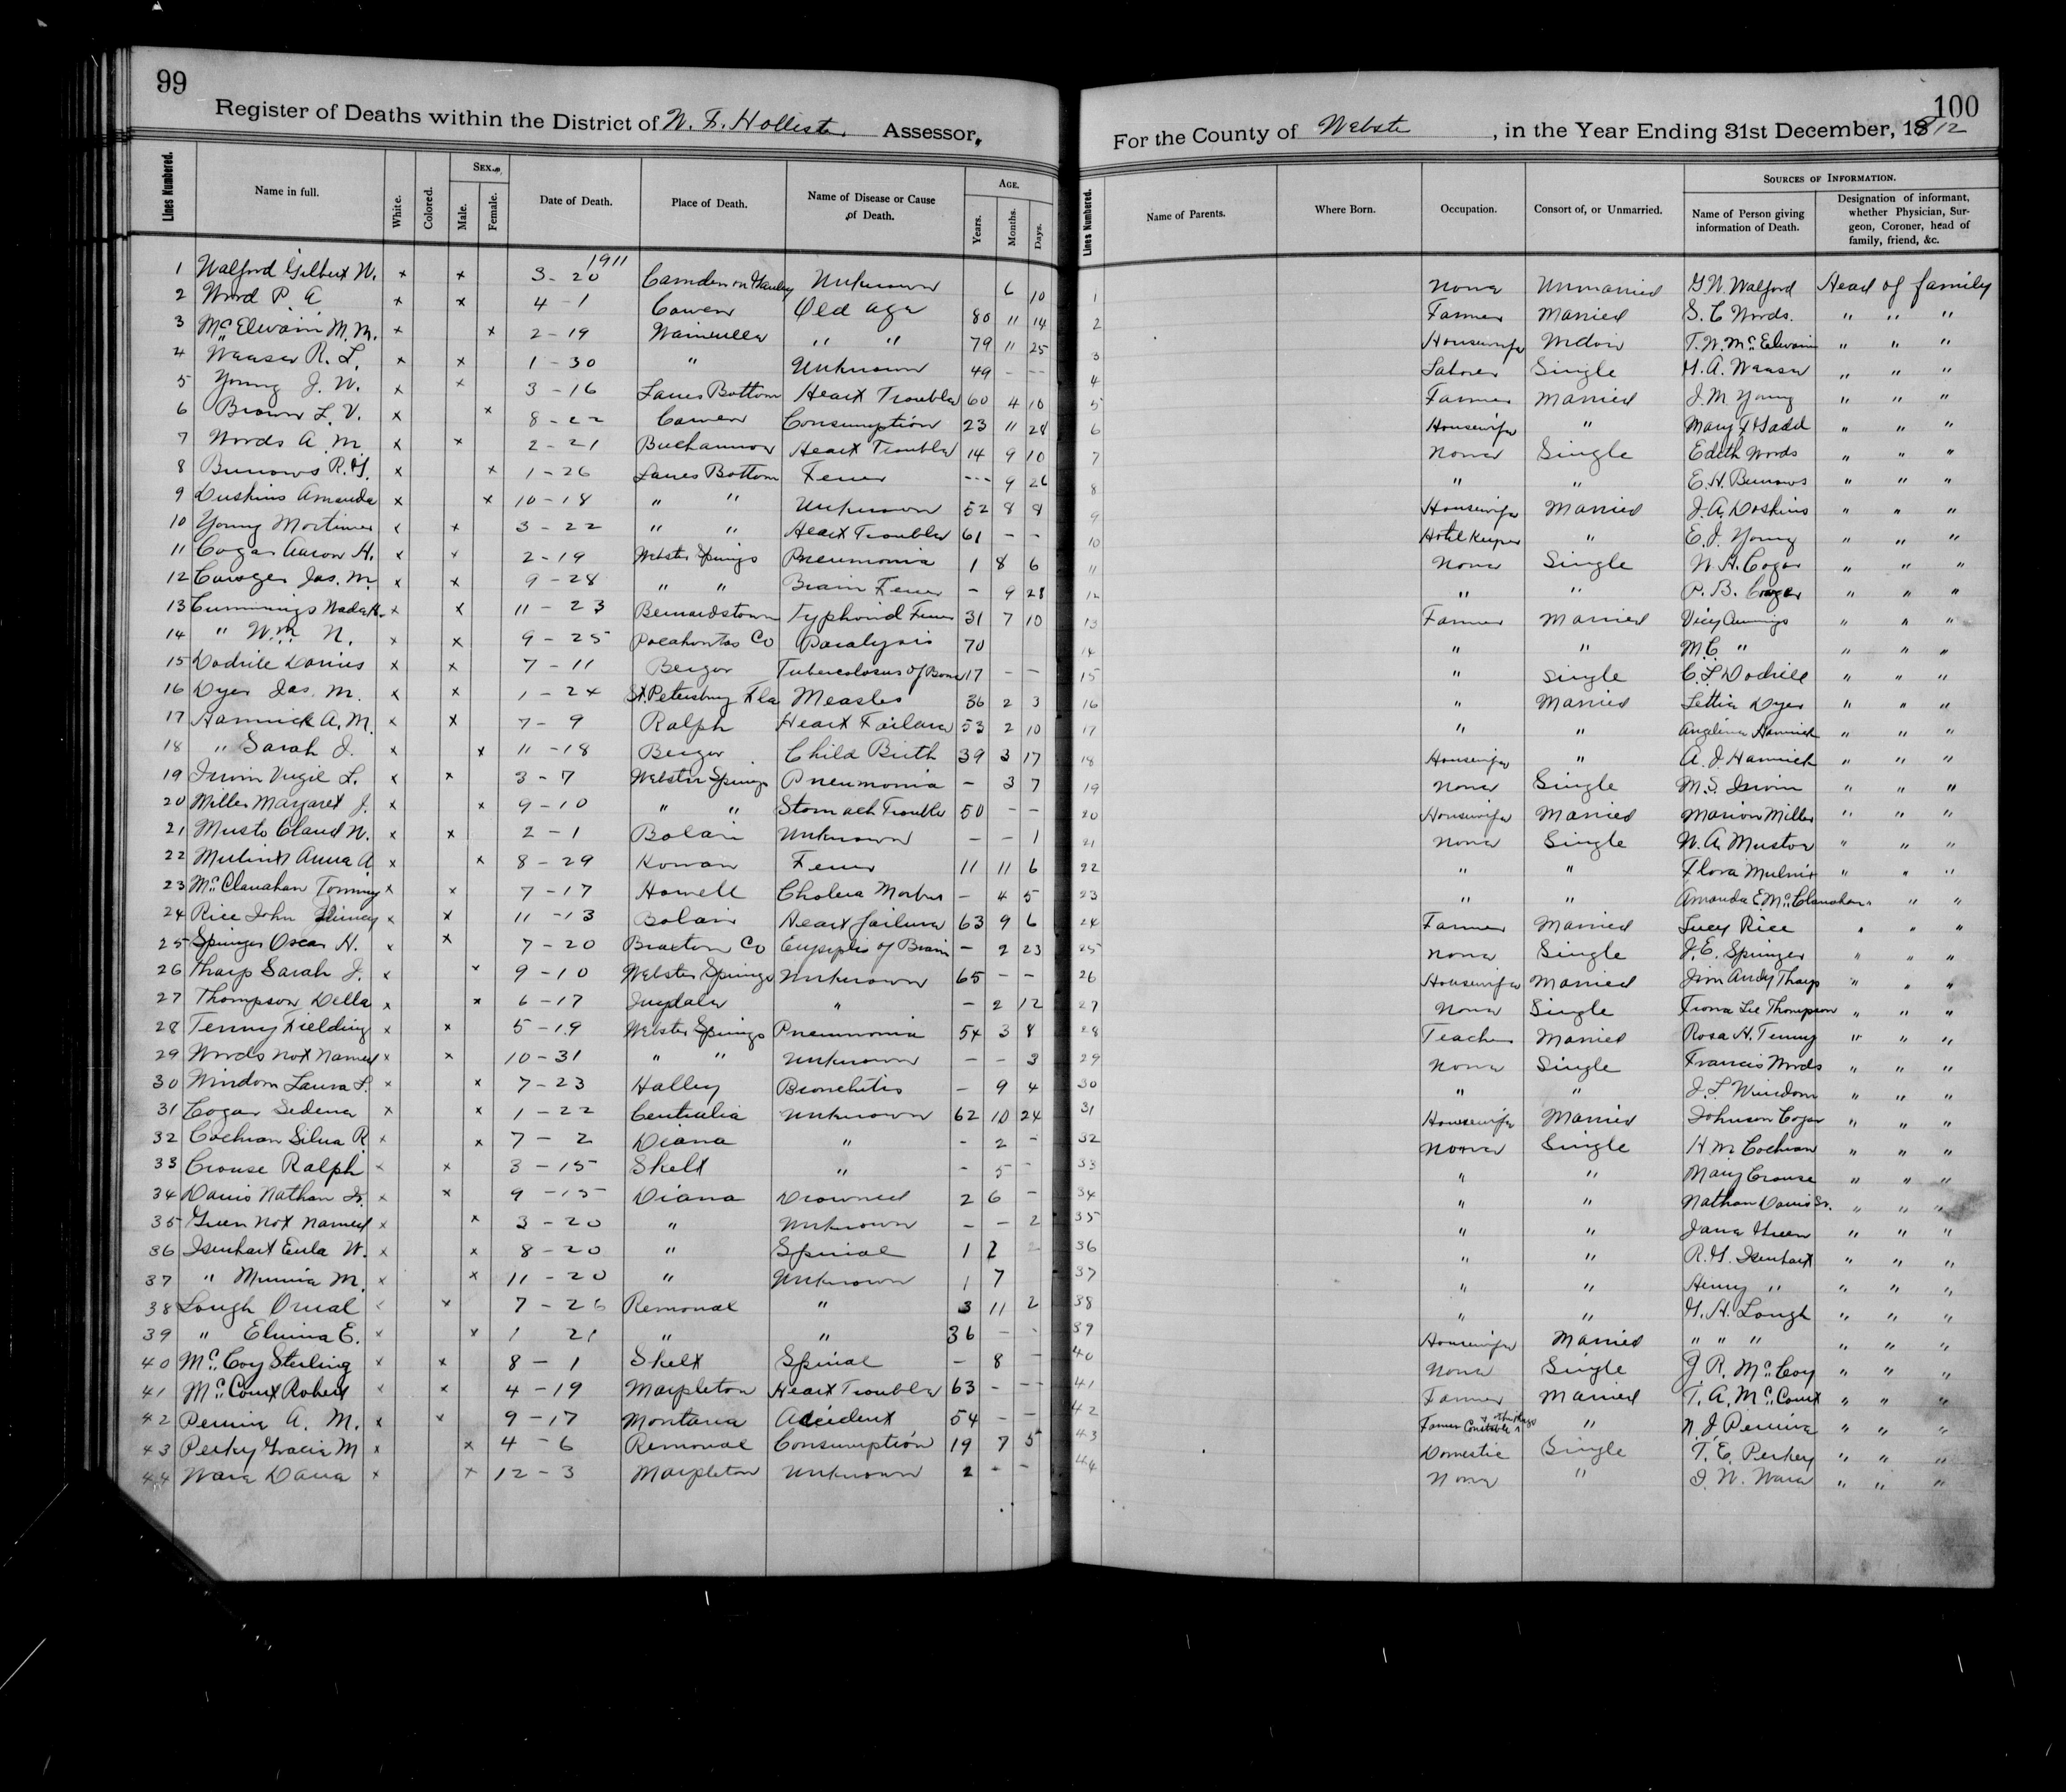 99
Register of Deaths within the District of W. F. Hollister Assessor,
Lines Numbered. Name in full. White. Colored. Sex. Male. Female. Date of Death. Place of Death. Name of Disease or Cause of Death. Age. Years. Months. Days.
1911
1 Walford Gilbert W. x x 3-20 Camden on Gauley Unknown 6 10
2 Word P. A x x 4-1 Cowen Old age 80 11 14
3 McElwain M. M. x x 2-19 Wainville " " 79 11 25
4 R. L. x x 1-30 " Unknown 49 - --
5 Young J. W. x x 3-16 Lanes Bottom Heart Trouble 60 4 10
6 Brown L. V. x x 8-22 Cowen Consumption 23 11 28
7 Woods A. M x x 2-21 Buchannon Heart Trouble 14 9 10
8 Burrows R. G. x x 1-26 Lanes Bottom Fever --- 9 26
9 Duskins Amanda x x 10-18 " " Unknown 52 8 8
10 Young Mortimer x x 3-22 " " Heart Trouble 61 - -
11 Cogar Aaron H. x x 2-19 Webster Springs Pneumonia 1 8 6
12 Jas. M. x x 9-28 " " Brain Fever - 9 28
13 Cummings Wade H. x x 11-23 Bernardstown Typhoid Fever 31 7 10
14 " Wm N. x x 9-25 Pocahontas Co Paralysis 70
15 Dodrill Darius x x 7-11 Bergoo Tuberculosus of Bone 17 - -
16 Dyer Jas. M. x x 1-24 St. Petersburg Fla Measles 36 2 3
17 Hamrick A. M. x x 7-9 Ralph Heart Failure 53 2 10
18 " Sarah J. x x 11-18 Bergoo Child Birth 39 3 17
19 Irvin Virgil L. x x 3-7 Webster Springs Pneumonia - 3 7
20 Miller Margaret J. x x 9-10 " " Stomach Trouble 50 - -
21 Musto Claud W. x x 2-1 Bolair Unknown - - 1
22 Anna A x x 8-29 Kovan Fever 11 11 6
23 McClanahan Tommy x x 7-17 Howell Cholera Morbus - 4 5
24 Rice John x x 11-13 Bolair Heart failure 63 9 6
25 Springer Oscar H. x x 7-20 Braxton Co of Brain - 2 23
26 Tharp Sarah J. x x 9-10 Webster Springs Unknown 65 - -
27 Thompson Della x x 6-17 Jugdale " - 2 12
28 Tenny Fielding x x 5-19 Webster Springs Pneumonia 54 3 8
29 Woods not named x x 10-31 " " Unknown - - 3
30 Windom Laura L. x x 7-23 Halley Bronchitis - 9 4
31 Cogar Sedena x x 1-22 Centralia Unknown 62 10 24
32 Cochran Silva R x x 7-2 Diana " - 2 -
33 Crouse Ralph x x 3-15 Skelt " - 5 -
34 Davis Nathan Jr. x x 9-15 Diana Drowned 2 6 -
35 Green not named x x 3-20 " Unknown - - 2
36 Isenhart Eula W. x x 8-20 " Spinal 1 2
37 " Minnia M. x x 11-20 " Unknown 1 7
38 Lough Orval x x 7-26 Removal " 3 11 2
39 " Elmina E. x x 1 21 " " 36 - -
40 McCoy Sterling x x 8-1 Skelt Spinal - 8 -
41 McCourt Robert x x 4-19 Marpleton Heart Trouble 63 - --
42 Perrine A. M. x x 9-17 Montana Accident 54 - -
43 Perky Gracie M x x 4-6 Removal Consumption 19 7 5
44 Ware Dana x x 12-3 Marpleton Unknown 2 - -
100
For the County of Webste , in the Year Ending 31st December, 1912
Lines Numbered. Name of Parents. Where Born. Occupation. Consort of, or Unmarried. Sources of Information. Name of Person giving information of Death. Designation of informant, whether Physician, Surgeon, Coroner, head of family, friend, &c.
1 None Unmarried G. W. Walford Head of family
2 Farmer Married S. C. Words. " " "
3 Housewife Widow T. W. McElwain " " "
4 Laborer Single H. A. " " "
5 Farmer Married J. M Young " " "
6 Housewife " Mary F Gadd " " "
7 None Single Edith Words " " "
8 " " E. H. Burrows " " "
9 Housewife Married J. A. Doskins " " "
10 Hotel Keeper " E. J. Young " " "
11 None Single W. H. Cogar " " "
12 " " P. B. " " "
13 Farmer Married Vicy " " "
14 " " M. C. " " " "
15 " Single C. L. Dodrill " " "
16 " Married Lettie Dyer " " "
17 " " Angelina Hamrick " " "
18 Housewife " A. J. Hamrick " " "
19 None Single M. S. Irvin " " "
20 Housewife Married Marion Miller " " "
21 None Single W. A. Mustoe " " "
22 " " Flora " " "
23 " " Amanda E. McClanahan " "
24 Farmer Married Lucy Rice " " "
25 None Single J. E. Springer " " "
26 Housewife Married Jim Andy Tharp " " "
27 None Single Fiona Lee Thompson " " "
28 Teacher Married Rosa H. Tenny " " "
29 None Single Francis Words " " "
30 " " J. L. Windom " " "
31 Housewife Married Johnson Cogar " " "
32 None Single H. M. Cochran " " "
33 " " Mary Crouse " " "
34 " " Nathan Davis Sr. " " "
35 " " Jane Green " " "
36 " " R. G. Isenhart " " "
37 " " Henry " " " "
38 " " G. H. Lough " " "
39 Housewife Married " " " " " "
40 None Single J. R. McCoy " " "
41 Farmer Married T. A. McCourt " " "
42 Farmer Constable & other things " N. J. Perrine " " "
43 Domestic Single T. E. Perkey " " "
44 None " J. W. Ware " " "